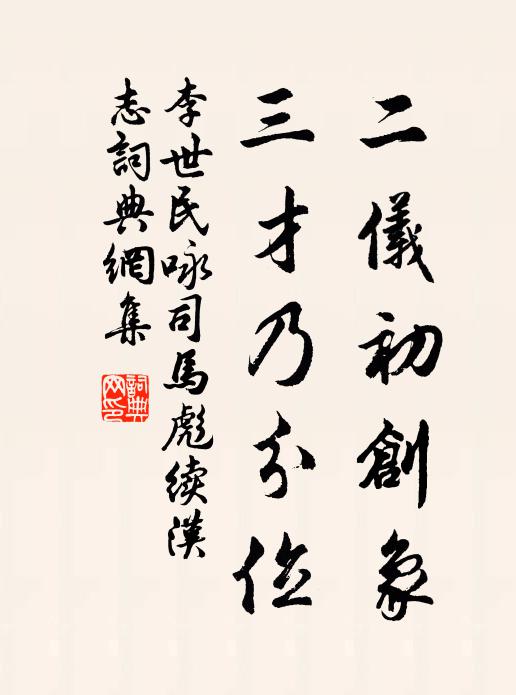 二儀初創象
三才乃分位
李世民咏司馬彪续漢
志詞典網集
詞典
网印